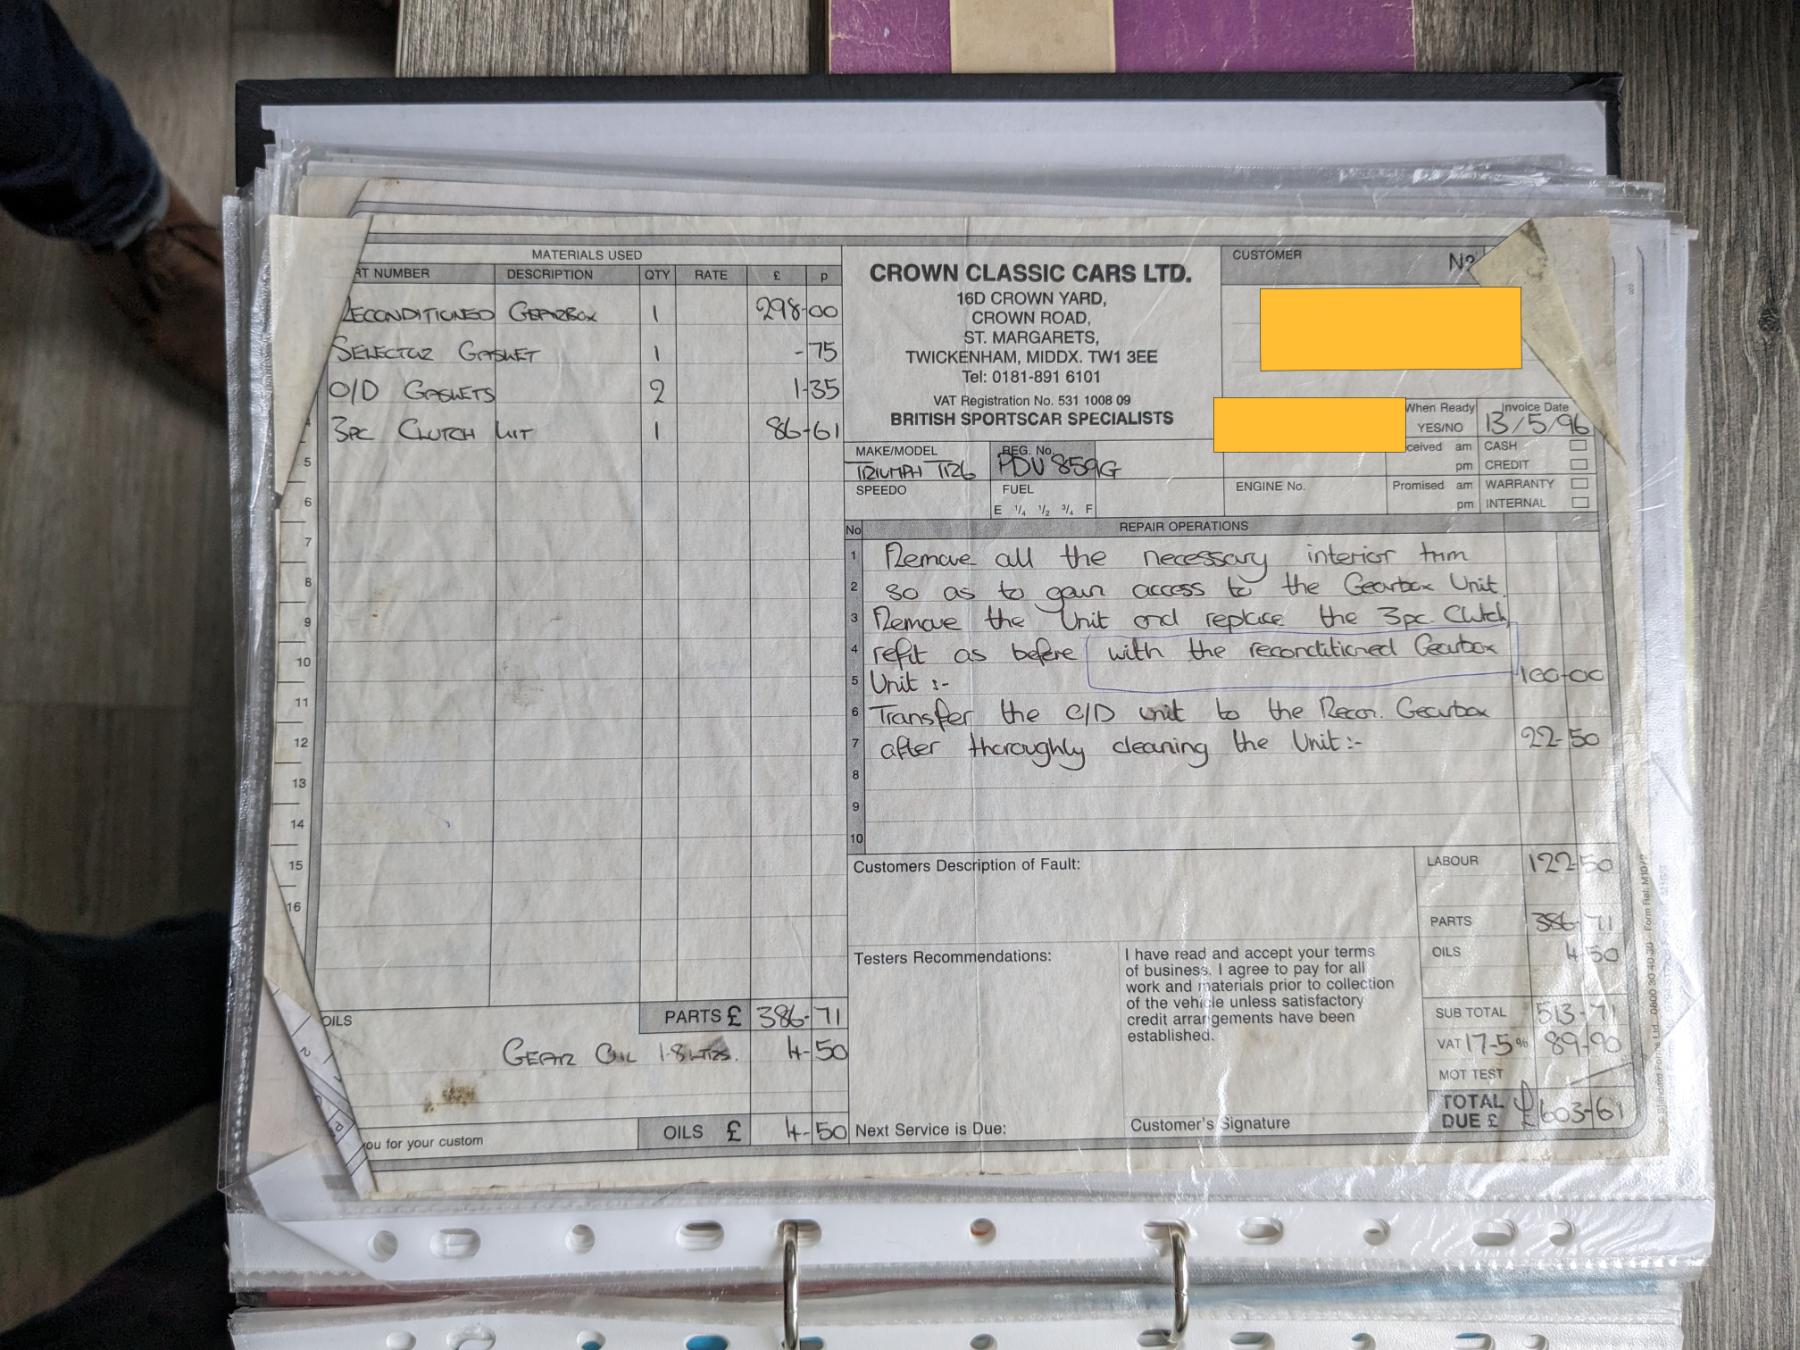 MATERIALS USED
RT NUMBER DESCRIPTION QTY RATE £ p
RECONDITIONED GEARBOX 1 298-00
SELECTOR GASKET 1 -75
O/D GASKETS 2 1-35
3PC CLUTCH KIT 1 86-61
5
6
7
8
9
10
11
12
13
14
15
16
OILS
PARTS £ 386-71
GEAR OIL 1-8 LTRS. 4-50
you for your custom
OILS £ 4-50
CROWN CLASSIC CARS LTD.
16D CROWN YARD,
CROWN ROAD,
ST. MARGARETS,
TWICKENHAM, MIDDX. TW1 3EE
Tel: 0181-891 6101
VAT Registration No. 531 1008 09
BRITISH SPORTSCAR SPECIALISTS
CUSTOMER
When Ready
YES/NO
Invoice Date
13/5/96
ceived am
pm
CASH
CREDIT
MAKE/MODEL
TRIUMPH TR6
REG. No.
PDV 859G
SPEEDO
FUEL
E 1/4 1/2 3/4 F
ENGINE No.
Promised am
pm
WARRANTY
INTERNAL
No REPAIR OPERATIONS
1 Remove all the necessary interior trim
2 so as to gain access to the Gearbox Unit.
3 Remove the Unit and replace the 3pc. Clutch
4 refit as before with the reconditioned Gearbox
5 Unit :- 100-00
6 Transfer the O/D unit to the Recon. Gearbox
7 after thoroughly cleaning the Unit:- 22-50
8
9
10
Customers Description of Fault:
Testers Recommendations:
I have read and accept your terms
of business. I agree to pay for all
work and materials prior to collection
of the vehicle unless satisfactory
credit arrangements have been
established.
Next Service is Due:
Customer's Signature
LABOUR 122-50
PARTS 386-71
OILS 4-50
SUB TOTAL 513-71
VAT 17-5% 89-90
MOT TEST
TOTAL
DUE £ £603-61